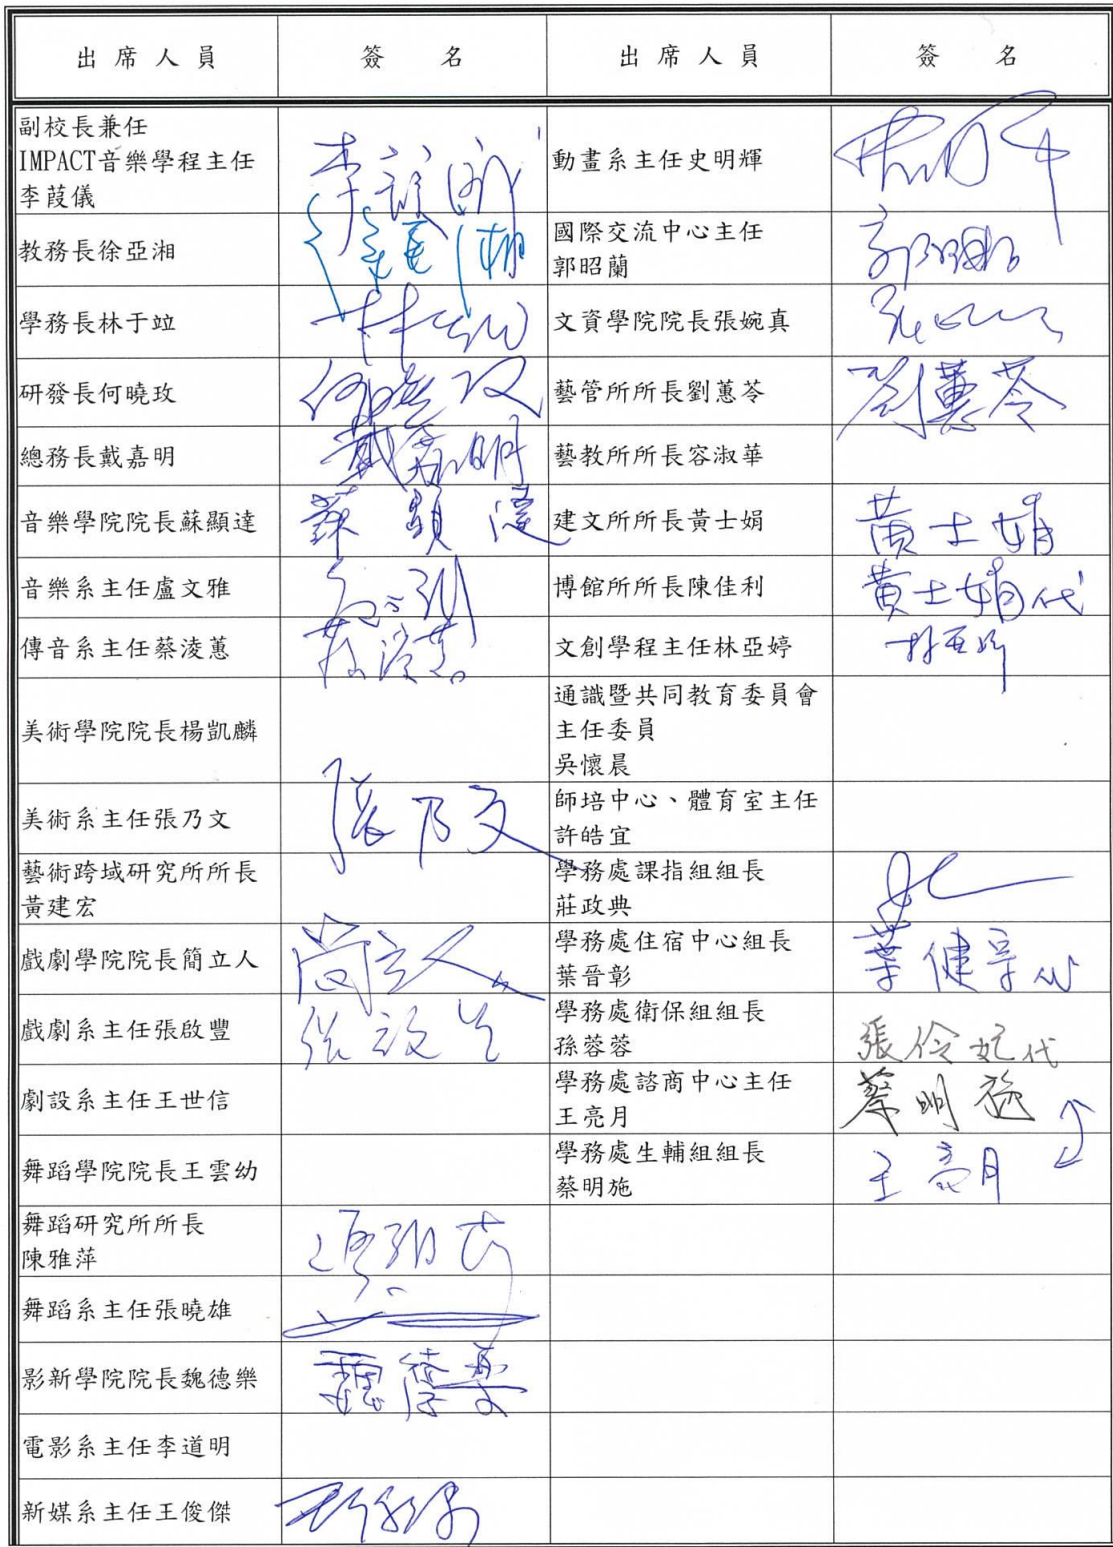 出席人員 簽名 出席人員 簽名
副校長兼任
IMPACT音樂學程主任
李葭儀
動畫系主任史明輝
教務長徐亞湘
國際交流中心主任
郭昭蘭
學務長林于竝
文資學院院長張婉真
研發長何曉玫 何曉玫
藝管所所長劉蕙苓 劉蕙苓
總務長戴嘉明 戴嘉明
藝教所所長容淑華
音樂學院院長蘇顯達 蘇顯達
建文所所長黃士娟 黃士娟
音樂系主任盧文雅
博館所所長陳佳利 黃士娟代
傳音系主任蔡淩蕙
文創學程主任林亞婷 林亞婷
美術學院院長楊凱麟
通識暨共同教育委員會
主任委員
吳懷晨
美術系主任張乃文 張乃文
師培中心、體育室主任
許皓宜
藝術跨域研究所所長
黃建宏
學務處課指組組長
莊政典
戲劇學院院長簡立人
學務處住宿中心組長
葉晉彰
戲劇系主任張啟豐
學務處衛保組組長
孫蓉蓉
張伶妃代
劇設系主任王世信
學務處諮商中心主任
王亮月
蔡明施
舞蹈學院院長王雲幼
學務處生輔組組長
蔡明施
王亮月
舞蹈研究所所長
陳雅萍
舞蹈系主任張曉雄
影新學院院長魏德樂 魏德樂
電影系主任李道明
新媒系主任王俊傑